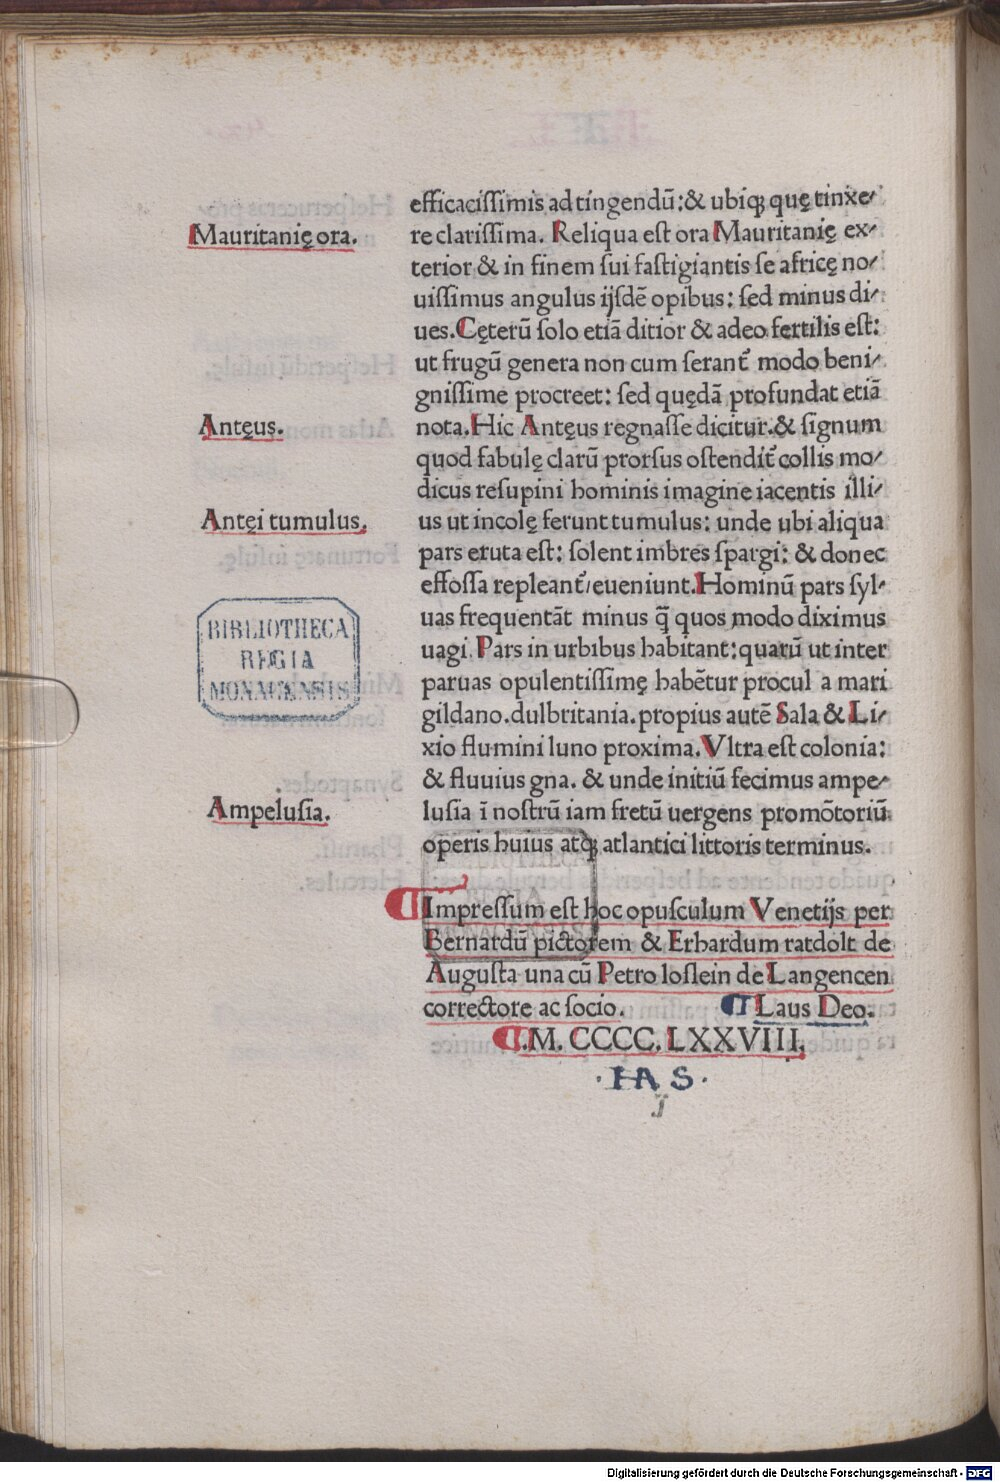 efficacissimis ad tingendū:& ubiqꝫ quę tinxe/
Mauritanię ora.
re clarissima. Reliqua est ora Mauritanię ex/
terior & in finem sui fastigiantis se africę no/
uissimus angulus ijsdē opibus: sed minus di/
ues. Cęterū solo etiā ditior & adeo fertilis est:
ut frugū genera non cum serant̃ modo beni/
gnissime procreet: sed quędā profundat etiā
Antęus.
nota. Hic Antęus regnasse dicitur.& signum
quod fabulę clarū prorsus ostendit̃ collis mo/
dicus resupini hominis imagine iacentis illi/
Antęi tumulus.
us ut incolę ferunt tumulus: unde ubi aliqua
pars eruta est: solent imbres spargi: & donec
effossa repleant̃/eueniunt. Hominū pars syl/
uas frequentāt minus q̄ quos modo diximus
BIBLIOTHECA
REGIA
MONACENSIS
uagi. Pars in urbibus habitant: quarū ut inter
paruas opulentissimę habētur procul a mari
gildano. dulbritania. propius autē Sala & Li/
xio flumini luno proxima. Vltra est colonia:
& fluuius gna. & unde initiū fecimus ampe/
Ampelusia.
lusia ī nostrū iam fretū uergens promōtoriū
operis huius atqꝫ atlantici littoris terminus.
Impressum est hoc opusculum Venetijs per
Bernardū pictorem & Erhardum ratdolt de
Augusta una cū Petro loslein de Langencen
correctore ac socio. Laus Deo.
.M. CCCC. LXXVIII.
Digitalisierung gefördert durch die Deutsche Forschungsgemeinschaft - DFG